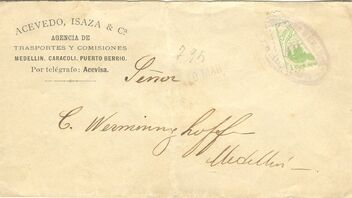 ACEVEDO, ISAZA & Cª
AGENCIA DE
TRASPORTES Y COMISIONES
MEDELLIN, CARACOLI, PUERTO BERRIO.
Por telégrafo: Acevisa.
Señor
C. Werminghoff
Medellín